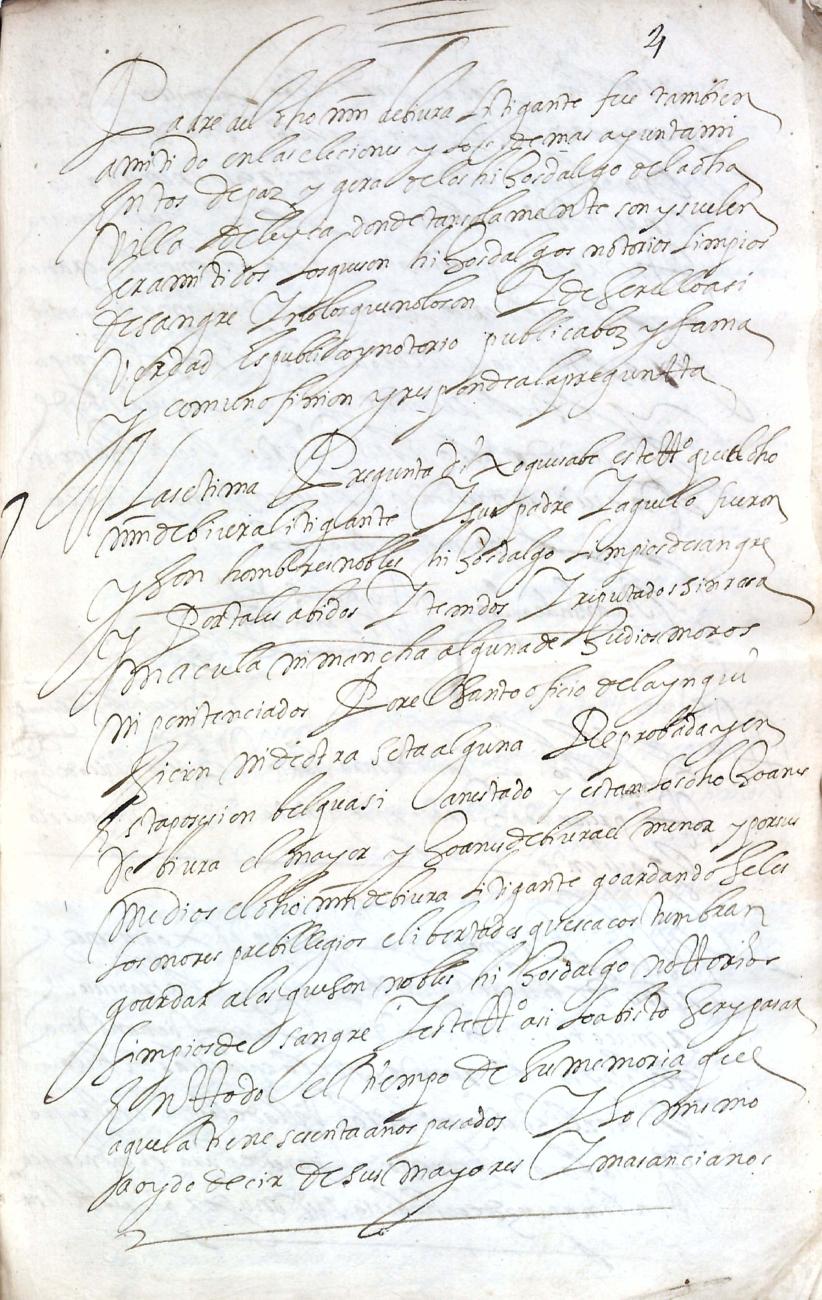 4
Padre del dho mīn de biura litigante fue tambien
amitido en las eleciones y los demas ayuntami
entos de paz y gera de los hijosdalgo de la dha
Villa de leyça donde tan solamente son y suelen
ser amitidos los que son hijosdalgos notorios limpios
de sangre I no los que no lo son I de ser ello asi
Verdad es publico y notorio publica boz y fama
y comun ofinion y responde a la pregunta
A la setima Pregunta dixo que sabe este tto que el dho
mīn de biura litigante I su padre I aguelo fueron
y son hombres nobles hijosdalgo limpios de sangre
y Por tales abidos I tenidos I reputados sin raça
macula ni mancha alguna de Judios moros
ni penitenciados Por el Santo oficio de la ynqui
sicion ni de otra seta alguna Reprobada y en
esta posesion bel quasi an estado y estan los dho Joanes
de biura el mayor y Joanes de biura el menor y por sus
medios el dho mīn de biura litigante goardando seles
los onores prebillegios e libertades que se acostumbran
goardar a los que son nobles hijosdalgo nottorios
limpios de sangre I este tto asi lo a bisto ser y pasar
En ttodo el tiempo de su memoria que el
aquella tiene sesenta años pasados I lo mismo
a oydo decir de sus mayores I mas ancianos